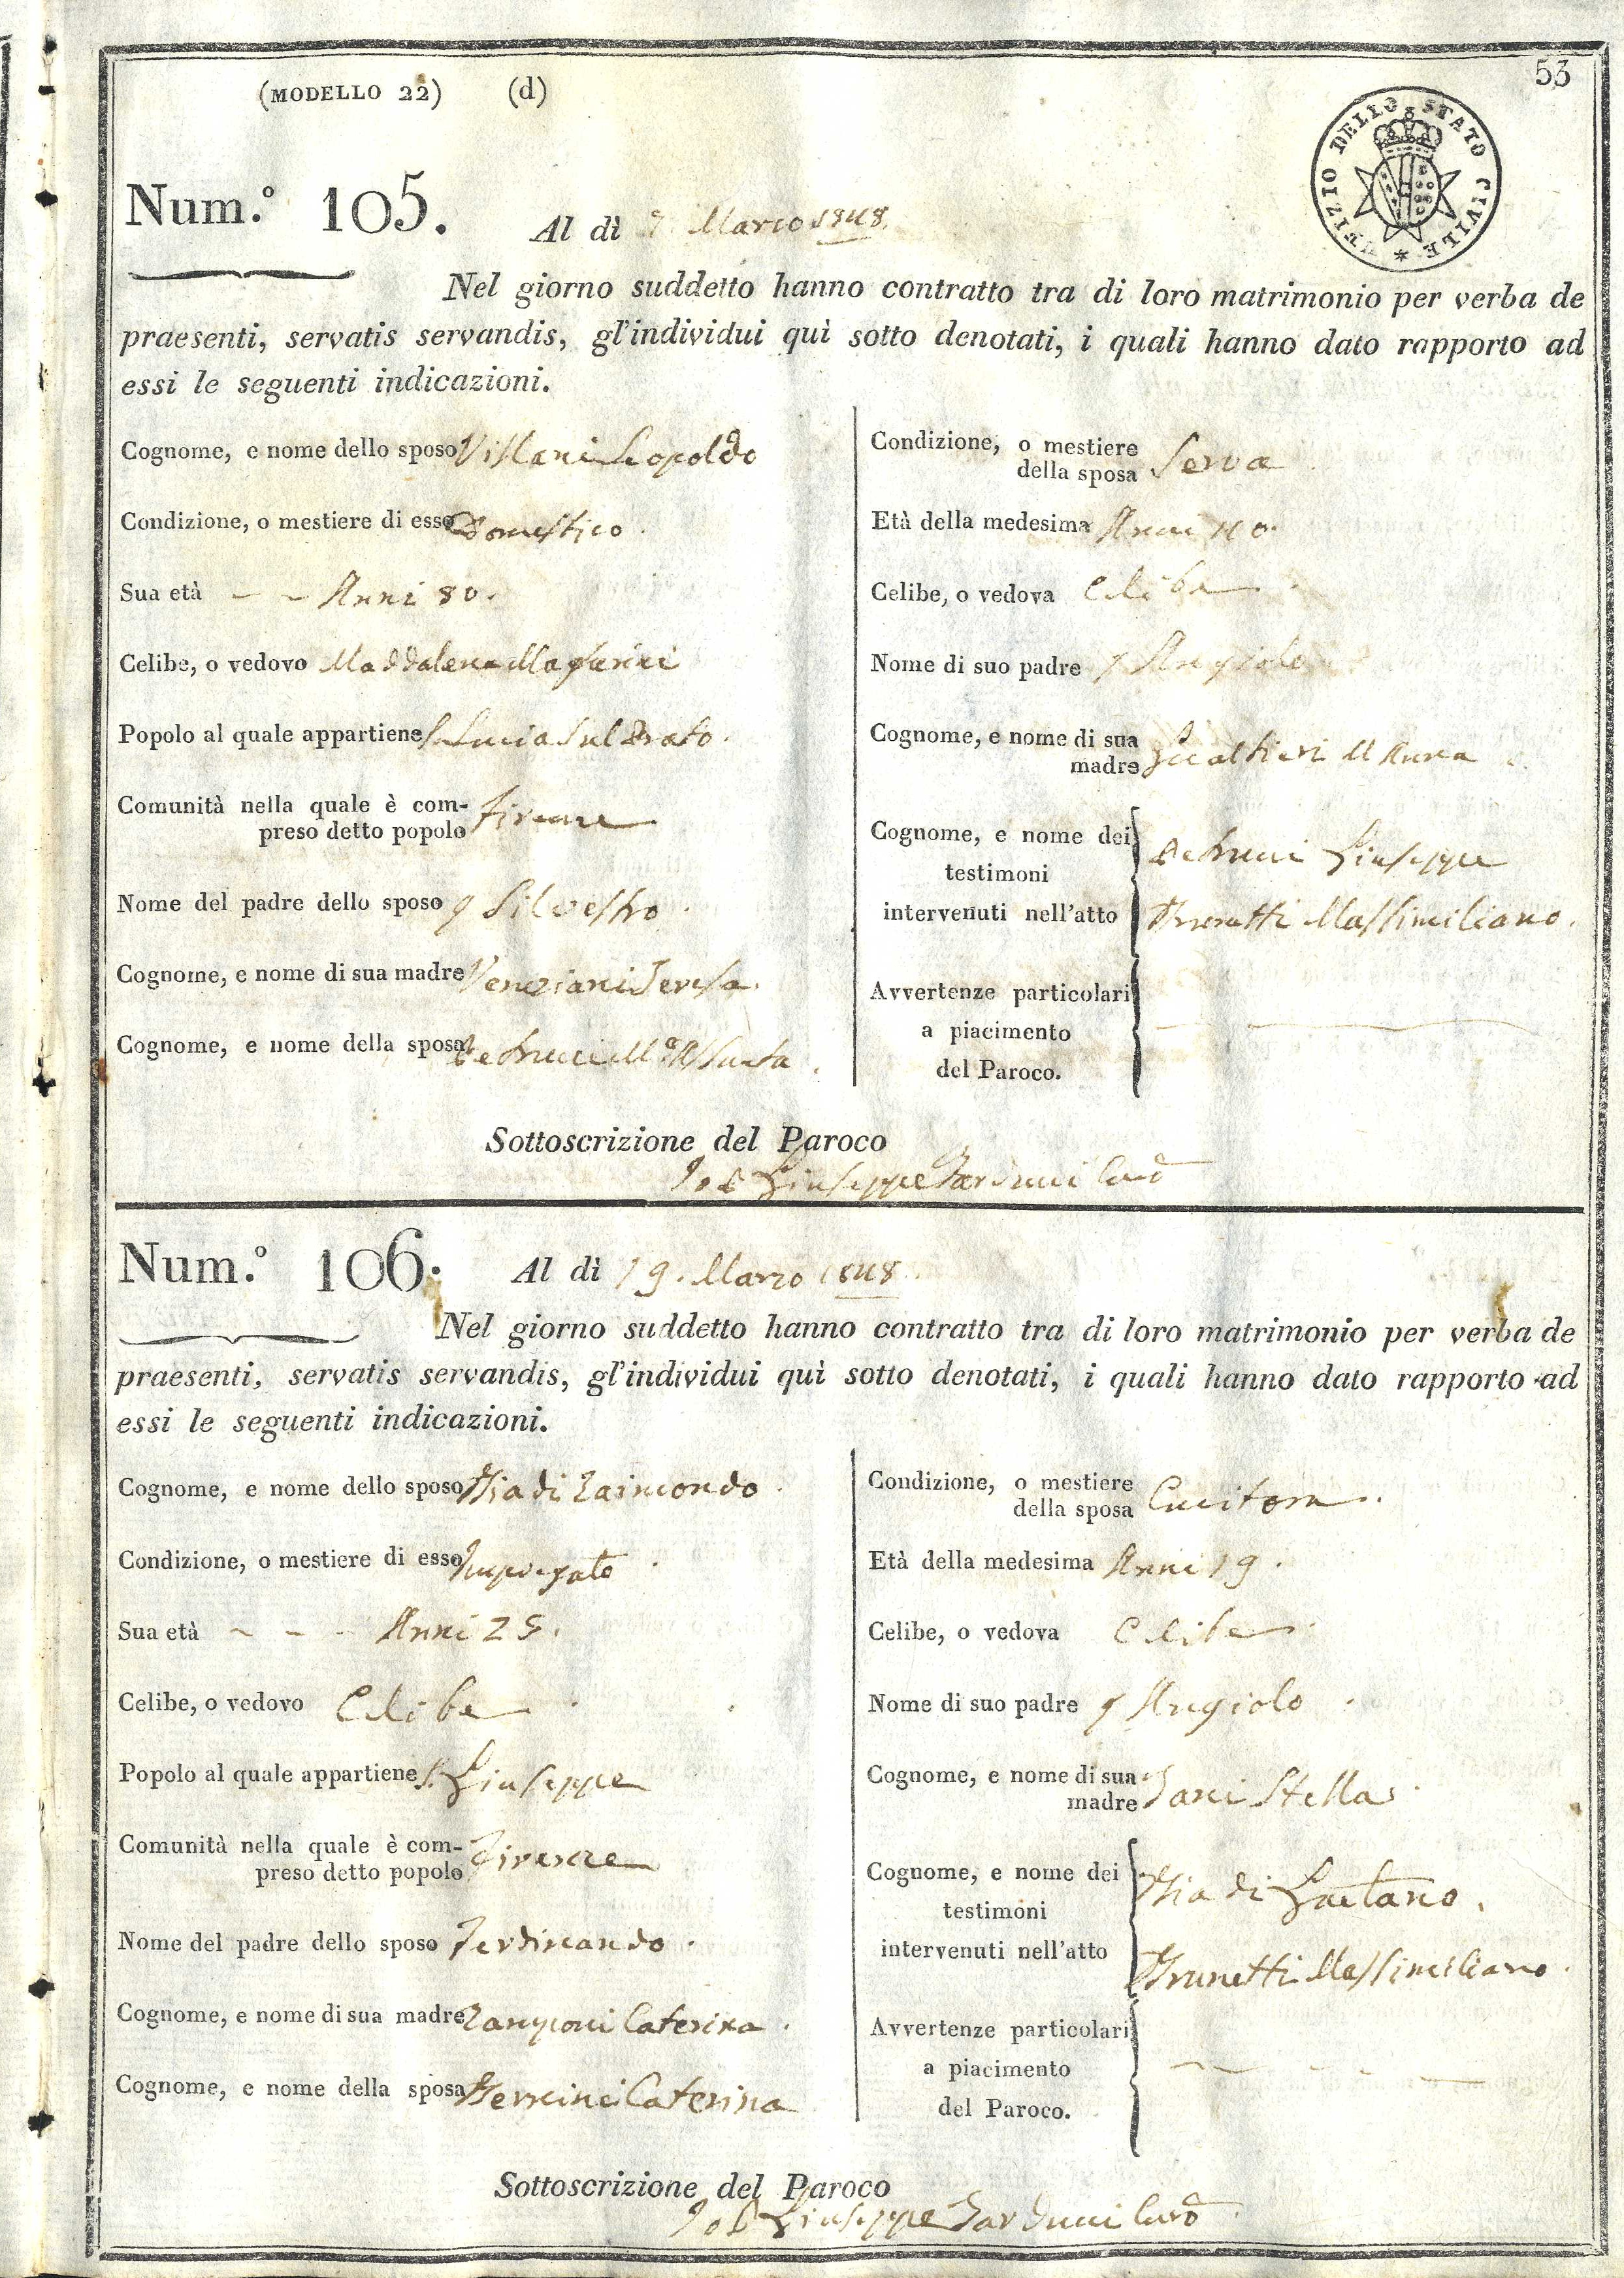 53
(MODELLO 22) (d)
UFIZIO DELLO STATO CIVILE
Num.º 105. Al dì Marzo 1848.
Nel giorno suddetto hanno contratto tra di loro matrimonio per verba de
praesenti, servatis servandis, gl'individui quì sotto denotati, i quali hanno dato rapporto ad
essi le seguenti indicazioni.
Cognome, e nome dello sposo Villani Leopoldo
Condizione, o mestiere di esso Domestico.
Sua età - - Anni 80.
Celibe, o vedovo Maddalena
Popolo al quale appartiene S. Lucia Sul Prato.
Comunità nella quale è com-
preso detto popolo Firenze
Nome del padre dello sposo q Silvestro.
Cognome, e nome di sua madre Veneziani Teresa.
Cognome, e nome della sposa Petrucci Mª Assunta.
Condizione, o mestiere
della sposa Serva
Età della medesima Anni 40.
Celibe, o vedova Celibe.
Nome di suo padre q Angiolo
Cognome, e nome di sua
madre Gualtieri M Anna
Cognome, e nome dei
testimoni
intervenuti nell'atto
Petrucci Giuseppe
Brunetti Massimiliano.
Avvertenze particolari
a piacimento
del Paroco.
Sottoscrizione del Paroco
Giuseppe Carducci
Num.º 106. Al dì 19. Marzo 1848.
Nel giorno suddetto hanno contratto tra di loro matrimonio per verba de
praesenti, servatis servandis, gl'individui quì sotto denotati, i quali hanno dato rapporto ad
essi le seguenti indicazioni.
Cognome, e nome dello sposo Biadi Raimondo.
Condizione, o mestiere di esso Impiegato.
Sua età - - - Anni 25.
Celibe, o vedovo Celibe.
Popolo al quale appartiene S. Giuseppe
Comunità nella quale è com-
preso detto popolo Firenze
Nome del padre dello sposo Ferdinando.
Cognome, e nome di sua madre Zamponi Caterina.
Cognome, e nome della sposa Caterina
Condizione, o mestiere
della sposa Cucitora.
Età della medesima Anni 19.
Celibe, o vedova Celibe.
Nome di suo padre q Angiolo.
Cognome, e nome di sua
madre Stella.
Cognome, e nome dei
testimoni
intervenuti nell'atto
Biadi Gaetano.
Brunetti Massimiliano.
Avvertenze particolari
a piacimento
del Paroco.
Sottoscrizione del Paroco
Giuseppe Carducci